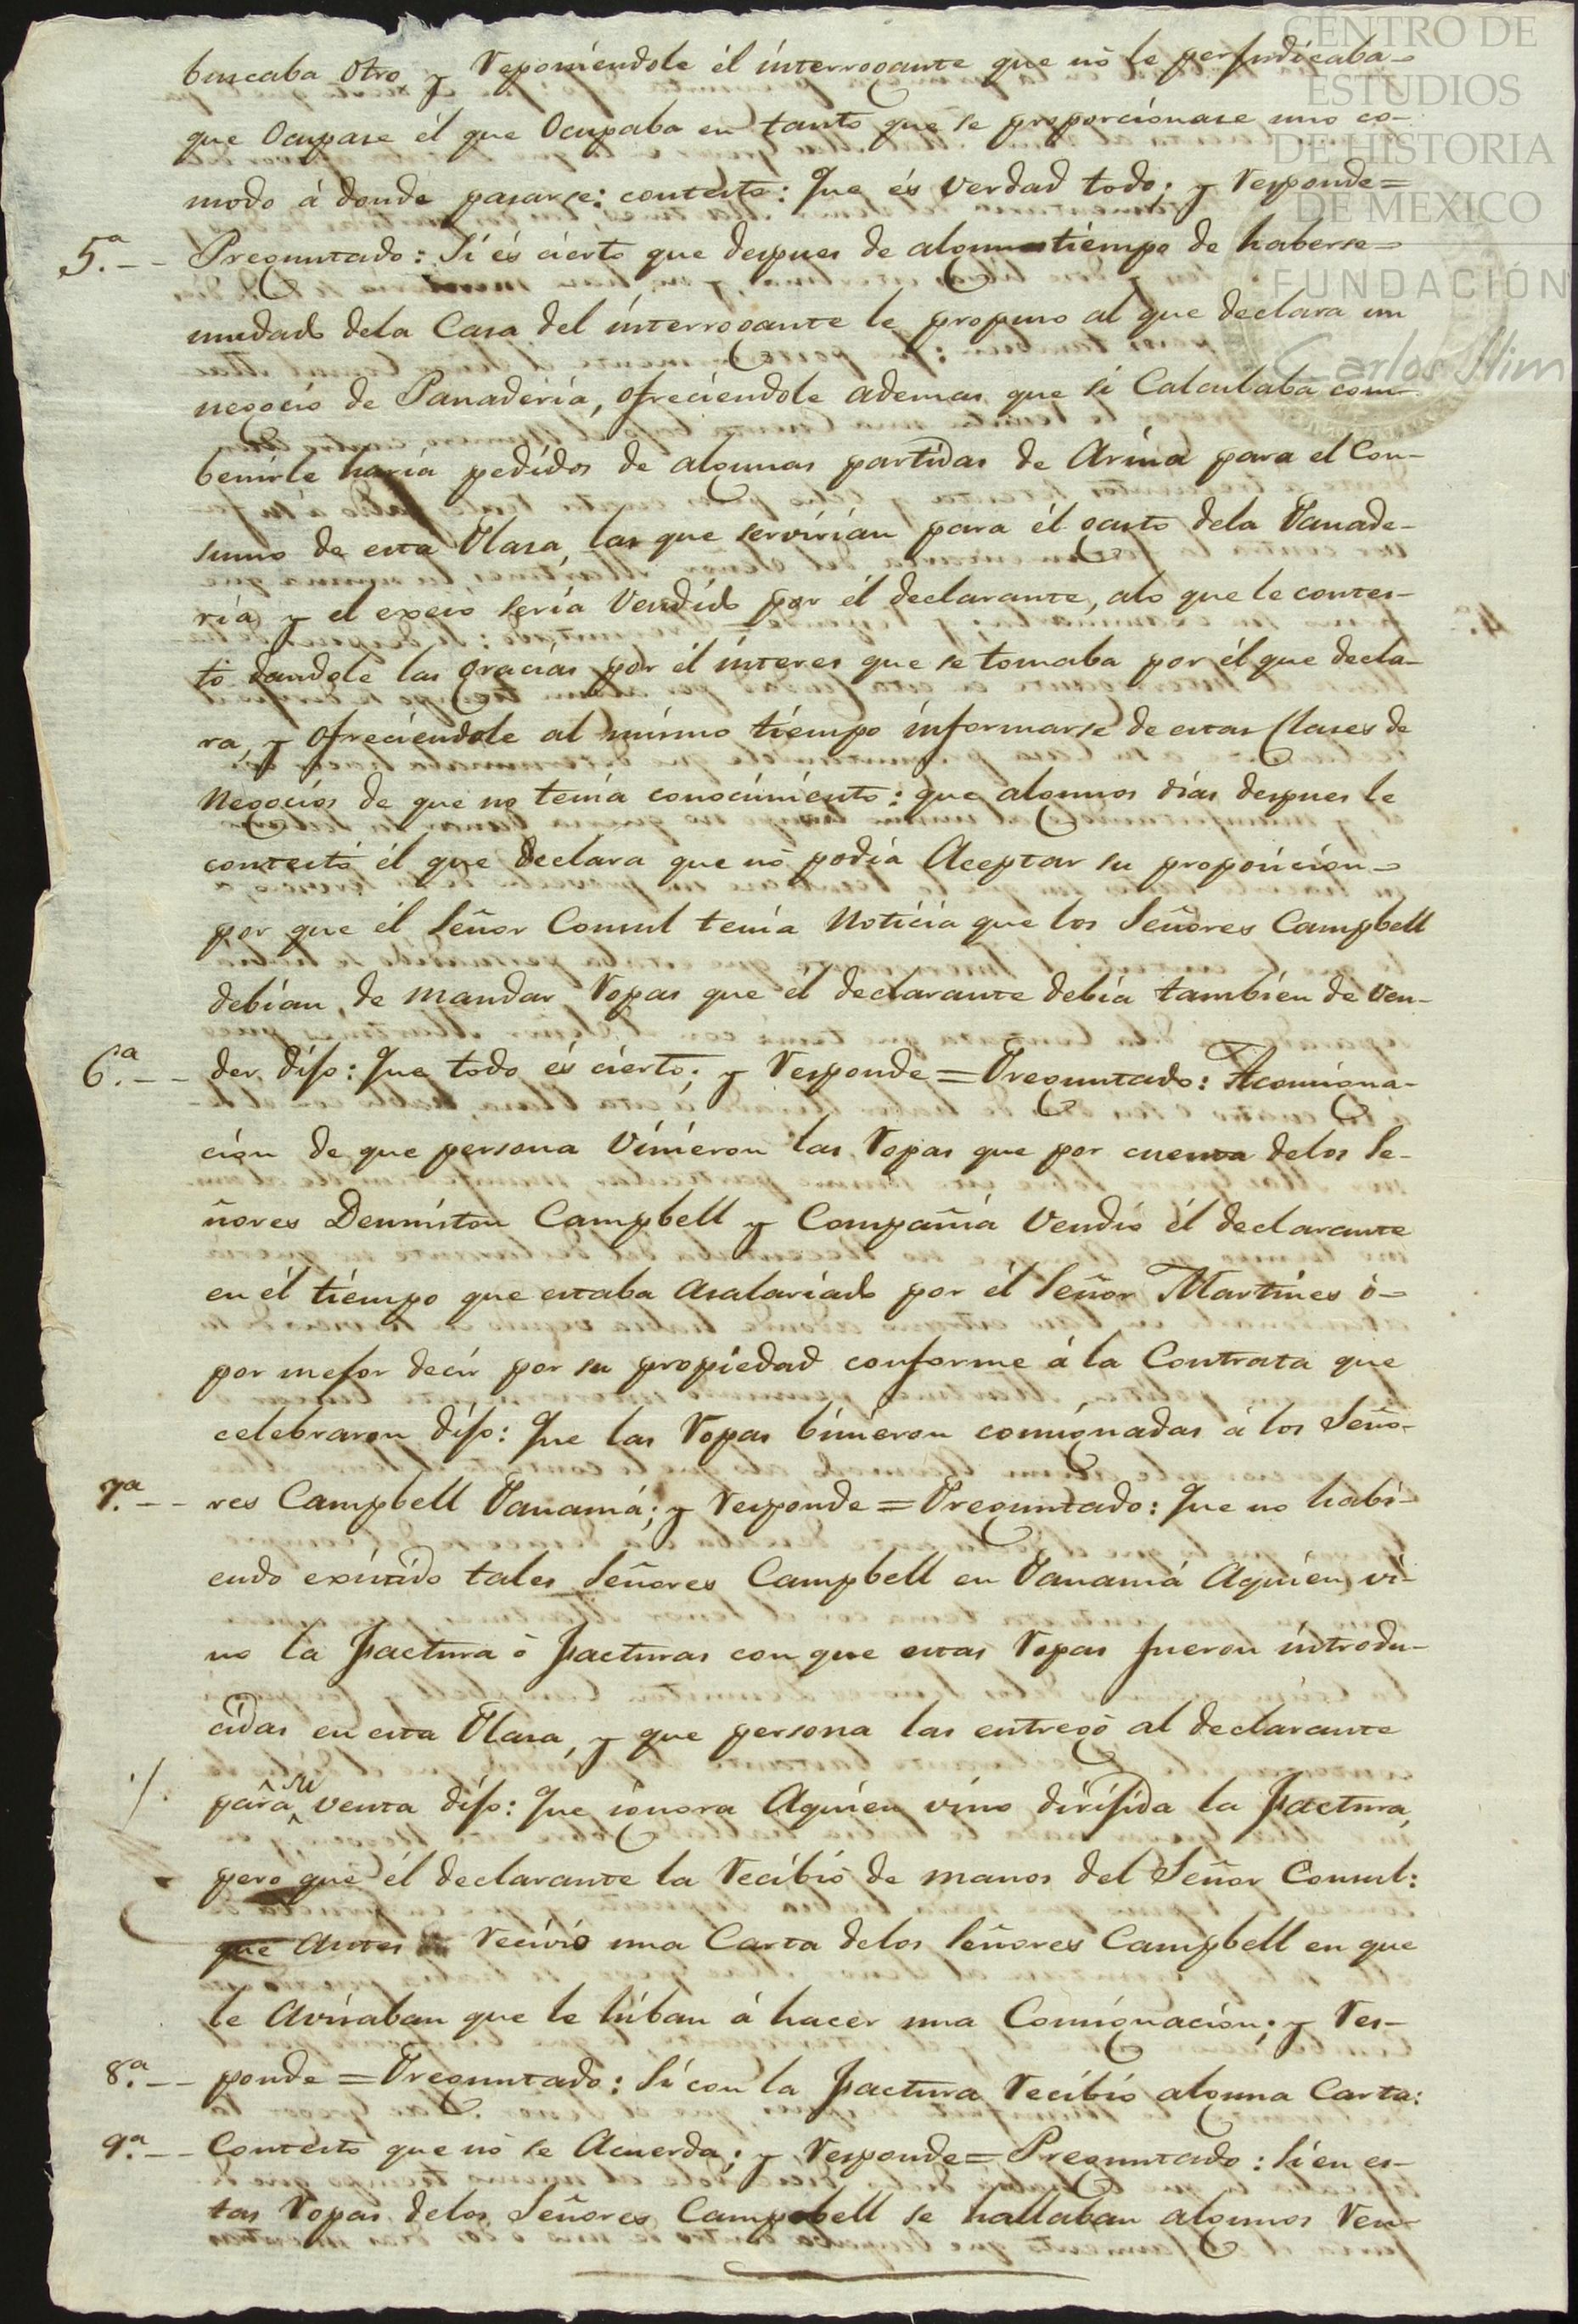 CENTRO DE
ESTUDIOS
DE HISTORIA
DE MEXICO
FUNDACIÓN
Carlos Slim
buscaba otro y reponiendole él interrogante que nò le perjudicaba
que Ocupase él que Ocupaba en tanto que se proporcionase uno co-
modo á donde pasarse: contesto: Que és verdad todo; y responde=
5.ª -- Preguntado: Si és cierto que despues de algun tiempo de haberse
mudado dela Casa del interrogante le propuso al que declara un
negocio de Panaderia, ofreciendole ademas que si Calculaba com-
benirle haria pedidos de algunas partidas de Arina para el Con-
sumo de esta Plasa, las que servirian para él gasto dela Panade-
ria y el exeso seria Vendido por él declarante, alo que le contes-
tó dandole las gracias por él interes que se tomaba por él que decla-
ra, y ofreciendole al mismo tiempo informarse de estas Clases de
Negocios de que no tenia conocimiento: que algunos dias despues le
contestó él que declara que nò podia Aceptar su proposicion
por que él Señor Consul tenia Noticia que los Señores Campbell
debian de mandar ropas que él declarante debia tambien de Ven-
6.ª -- der dijo: Que todo és cierto; y responde=Preguntado: Aconsigna-
cion de que persona Vinieron las ropas que por cuenta delos Se-
ñores Denniston Campbell y Compañia Vendio él declarante
en él tiempo que estaba Asalariado por él Señor Martines ò
por mejor decir por su propiedad conforme á la Contrata que
celebraron dijo: Que las ropas binieron consignadas á los Seño-
7.ª -- res Campbell Panamá; y responde=Preguntado: Que no habi-
endo existido tales Señores Campbell en Panamá Aquien vi-
no la factura ò facturas con que estas ropas fueron introdu-
cidas en esta Plasa, y que persona las entregó al declarante
para su venta dijo: Que ignora Aquien vino dirijida la factura,
pero que él declarante la recibió de manos del Señor Consul:
que Antes recivio una Carta delos Señores Campbell en que
le Avisaban que le hiban á hacer una Consignacion; y res-
8.ª -- ponde=Preguntado: Si con la factura recibio alguna Carta:
9.ª -- Contesto que nò se Acuerda; y responde=Preguntado: Si en es-
tas ropas delos Señores Campbell se hallaban algunos ren-